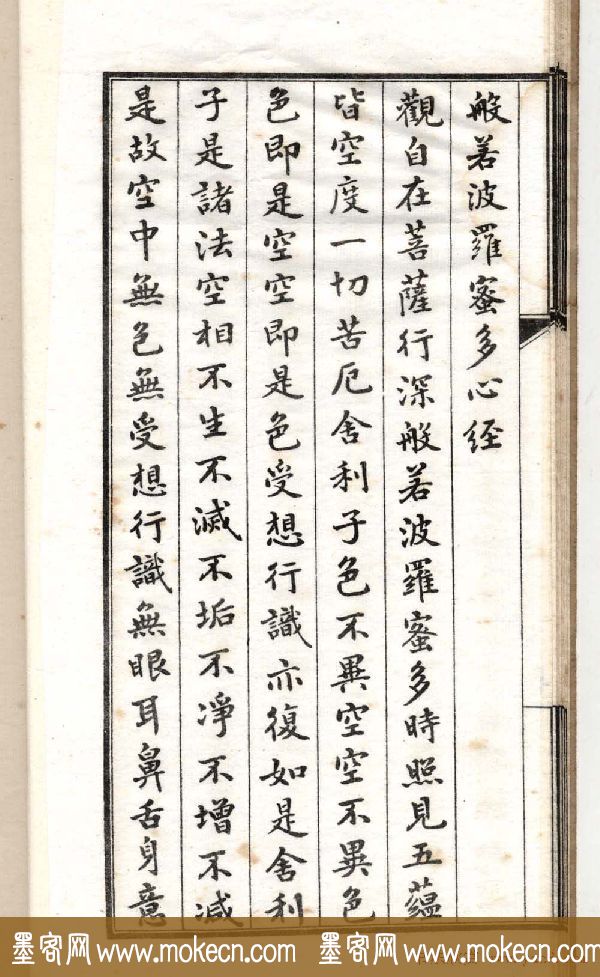 般若波羅蜜多心経
觀自在菩薩行深般若波羅蜜多時照見五蘊
皆空度一切苦厄舍利子色不異空空不異色
色即是空空即是色受想行識亦復如是舍利
子是諸法空相不生不滅不垢不凈不增不減
是故空中無色無受想行識無眼耳鼻舌身意
墨客网 www.mokecn.com 墨客网 www.mokecn.com